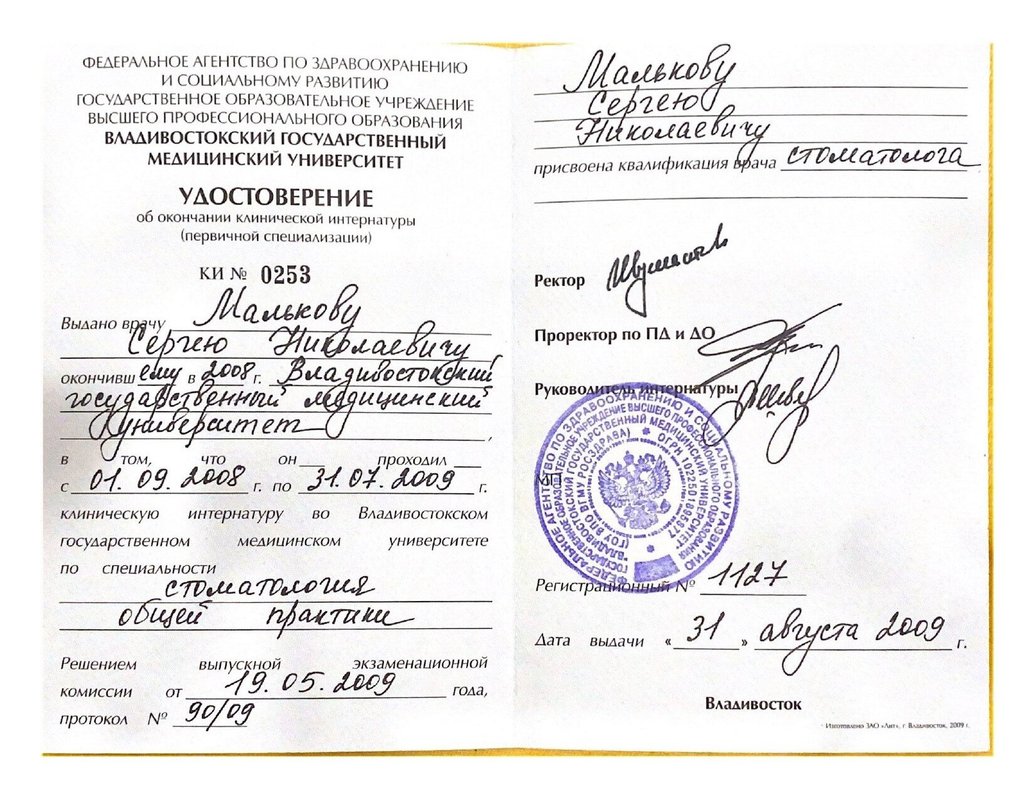 ФЕДЕРАЛЬНОЕ АГЕНТСТВО ПО ЗДРАВООХРАНЕНИЮ
И СОЦИАЛЬНОМУ РАЗВИТИЮ
ГОСУДАРСТВЕННОЕ ОБРАЗОВАТЕЛЬНОЕ УЧРЕЖДЕНИЕ
ВЫСШЕГО ПРОФЕССИОНАЛЬНОГО ОБРАЗОВАНИЯ
ВЛАДИВОСТОКСКИЙ ГОСУДАРСТВЕННЫЙ
МЕДИЦИНСКИЙ УНИВЕРСИТЕТ
УДОСТОВЕРЕНИЕ
об окончании клинической интернатуры
(первичной специализации)
КИ № 0253
Выдано врачу Малькову
Сергею Николаевичу
окончившему в 2008 г. Владивостокский
государственный медицинский
университет,
в том, что он проходил
с 01.09.2008 г. по 31.07.2009 г.
клиническую интернатуру во Владивостокском
государственном медицинском университете
по специальности
стоматология
общей практики
Решением выпускной экзаменационной
комиссии от 19.05.2009 года,
протокол № 90/09
Малькову
Сергею
Николаевичу
присвоена квалификация врача стоматолога
Ректор
Проректор по ПД и ДО
Руководитель интернатуры
МП
ФЕДЕРАЛЬНОЕ АГЕНТСТВО ПО ЗДРАВООХРАНЕНИЮ И СОЦИАЛЬНОМУ РАЗВИТИЮ
Регистрационный № 1127
Дата выдачи «31» августа 2009 г.
Владивосток
Изготовлено ЗАО «Лит», г. Владивосток, 2009 г.